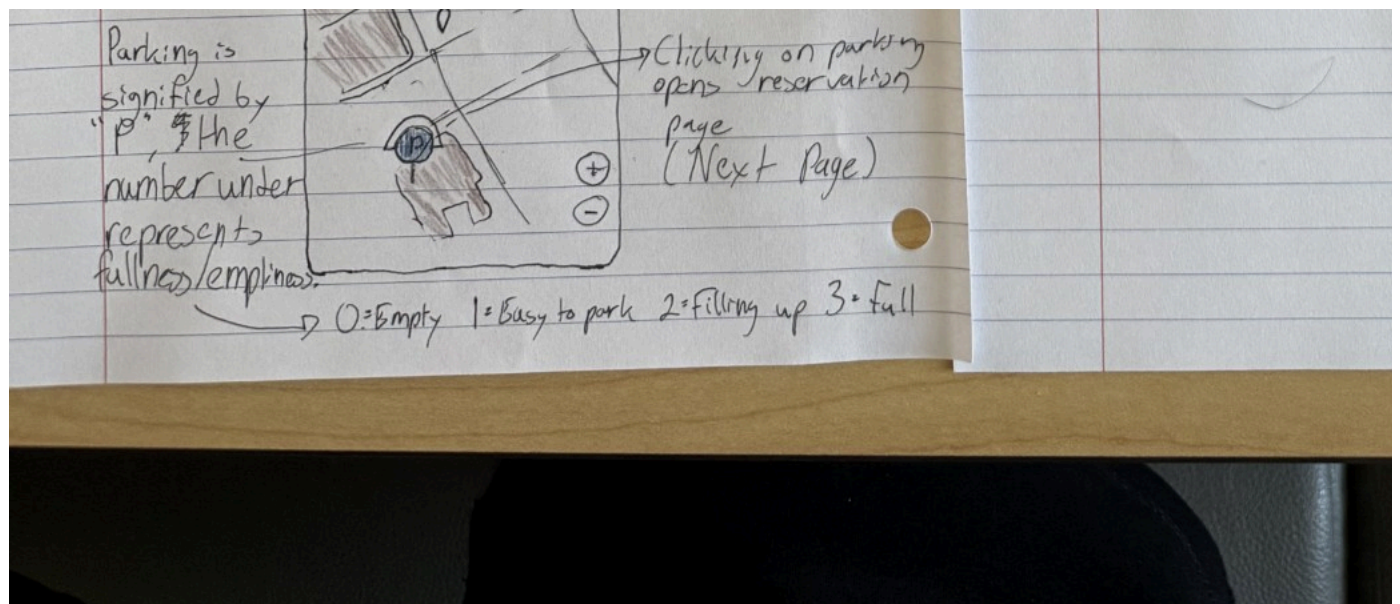 Parking is
signified by
"P", & the
number under
represents
fullness/emptiness.
P
+
-
Clicking on parking
opens reservation
page
(Next Page)
0=Empty 1=Easy to park 2=filling up 3=full